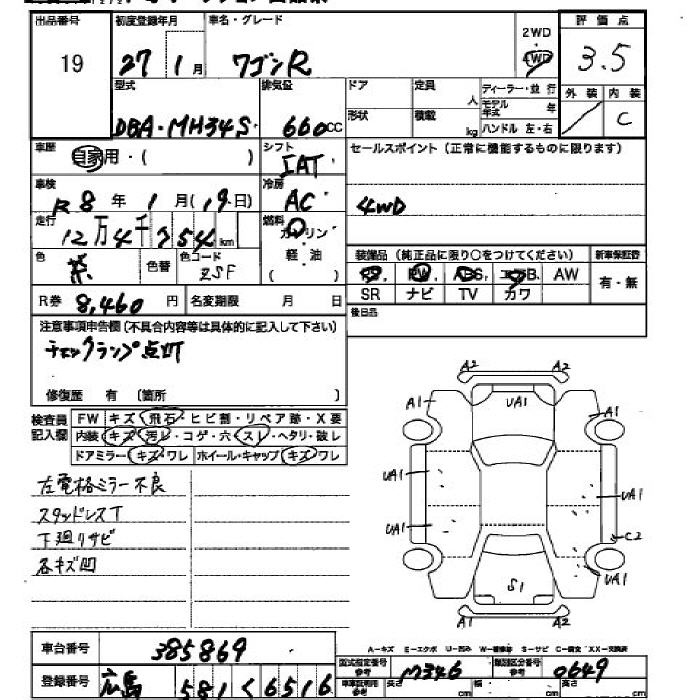 出品番号 初度登録年月 車名・グレード 2WD ・ 4WD 評価点
19 27 1月 ワゴンR 3.5
型式 排気量 ドア 定員 人 ディーラー・並行 外装 内装
DBA-MH34S 660cc 形状 積載 kg モデル年式 年 C
ハンドル 左・右
車歴 シフト セールスポイント(正常に機能するものに限ります)
自家用・( ) IAT
車検 冷房
R8年1月(19日) AC 4WD
走行 燃料
12万4千754km ガソリン
色 色替 色コード 軽油 装備品(純正品に限り○をつけてください) 新車保証書
紫 ZSF ( ) PS、PW、ABS、エアB、AW 有・無
R券 8,460円 名変期限 月 日 SR ナビ TV カワ
注意事項申告欄(不具合内容等は具体的に記入して下さい) 後日品
チェックランプ点灯
修復歴 有 〔箇所 〕
検査員 FW キズ・飛石・ヒビ割・リペア跡・X要
記入欄 内装 キズ・汚レ・コゲ・穴・スレ・ヘタリ・破レ
ドアミラー キズ・ワレ ホイール・キャップ キズ・ワレ
左電格ミラー不良
スタッドレスT
下廻りサビ
各キズ凹
A2 A2
A1 UA1 A1
UA1 UA1
UA1 C2
UA1
S1
A1 A2
A-キズ E-エクボ U-凹み W-補修跡 S-サビ C-腐食 XX-交換済
車台番号 385869 型式指定番号 参考 M346 類別区分番号 参考 0649
登録番号 広島 581 く 6516 車車証明用 参考 長さ cm 幅 cm 高さ cm